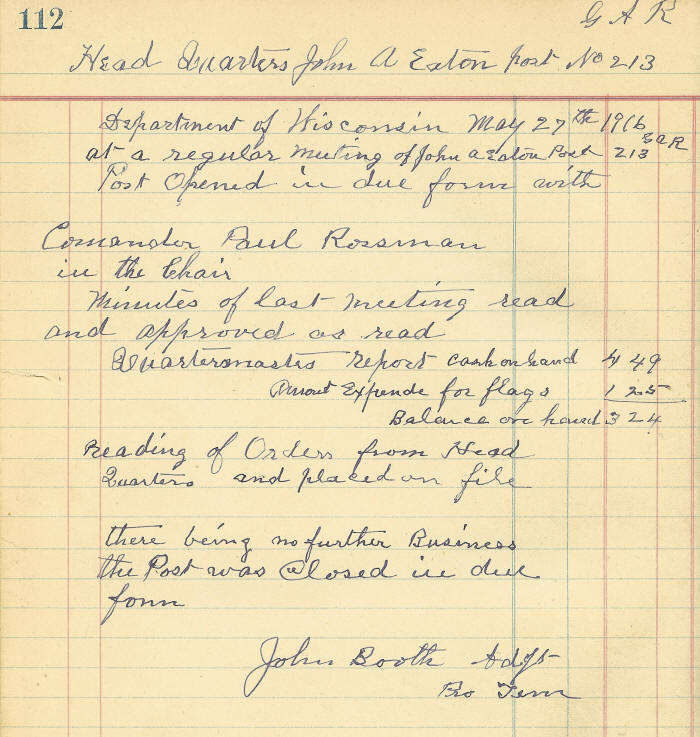 112
G A R
Head Quarters John A Eaton post No 213
Department of Wisconsin May 27th 1916
at a regular Meeting of John a Eaton Post 213 GAR
Post Opened in due form with
Comander Paul Rossman
in the Chair
Minutes of last meeting read
and approved as read
Quartermasters report cash on hand 4 49
Amout Expende for flags 1 25
Balance on hand 3 24
reading of Orders from Head
Quarters and placed on file
there being no further Business
the Post was Closed in due
form
John Booth Adjt
Pro Tem